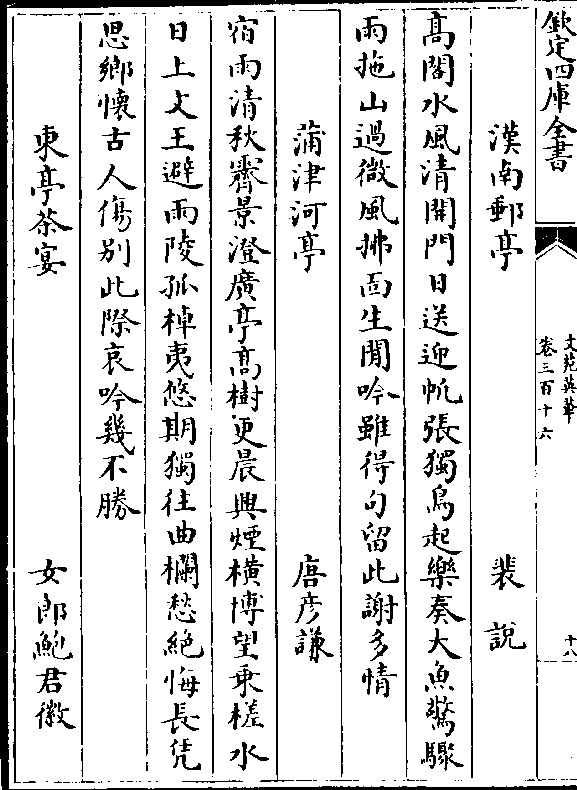 欽定四庫全書
文苑英華
卷三百十六
十八
漢南郵亭 裴說
高閣水風清開門日送迎帆張獨鳥起樂奏大魚驚驟
雨拖山過微風拂面生閒吟雖得句留此謝多情
蒲津河亭 唐彦謙
宿雨清秋霽景澄廣亭高樹更晨興煙橫博望乗槎水
日上文王避雨陵孤棹夷悠期獨往曲欄愁絶悔長凭
思鄉懷古人傷别此際哀吟幾不勝
東亭茶宴 女郎鮑君徽